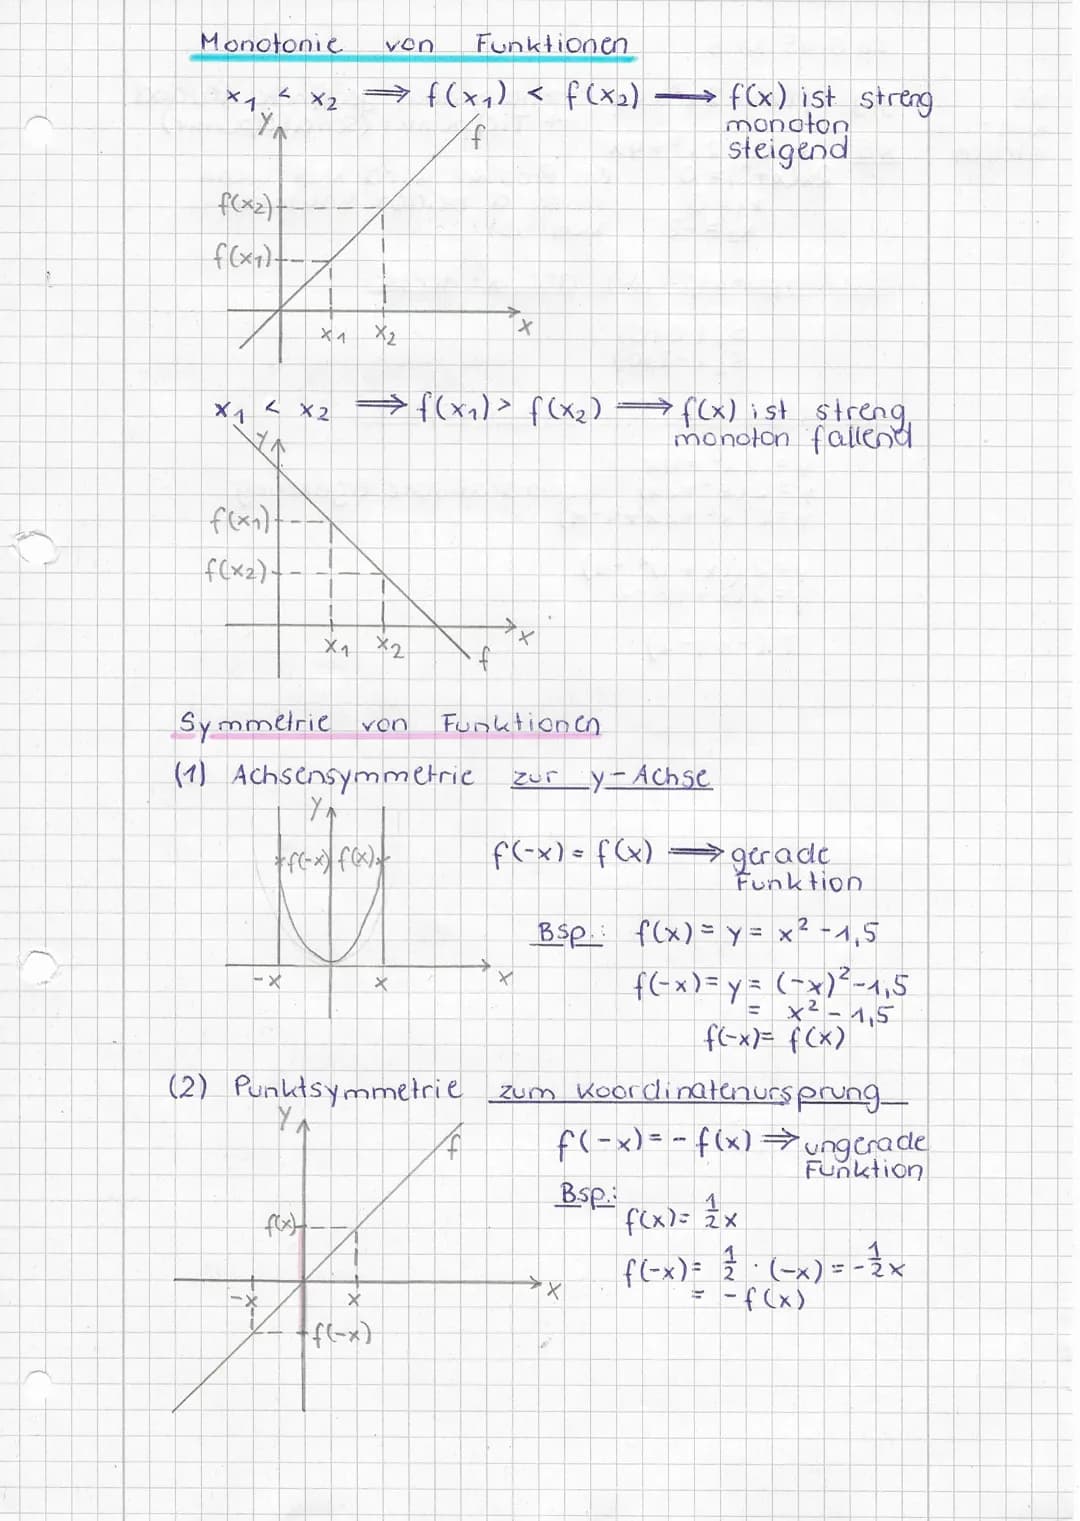 Monotonie von Funktionen
x₁ < x₂ ⟹ f(x₁) < f(x₂) ⟶ f(x) ist streng
monoton
steigend
y
f
f(x₂)
f(x₁)
x₁ x₂ x
x₁ < x₂ ⟹ f(x₁) > f(x₂) ⟹ f(x) ist streng
monoton fallend
y
f(x₁)
f(x₂)
x₁ x₂ x
f
Symmetrie von Funktionen
(1) Achsensymmetrie zur y-Achse
y
f(-x) f(x)
-x x x
f(-x) = f(x) ⟹ gerade
Funktion
Bsp.: f(x) = y = x² - 1,5
f(-x) = y = (-x)² - 1,5
= x² - 1,5
f(-x) = f(x)
(2) Punktsymmetrie zum Koordinatenursprung
y
f
f(x)
-x x x
f(-x)
f(-x) = - f(x) ⟹ ungerade
Funktion
Bsp.:
f(x) = ½x
f(-x) = ½ · (-x) = -½x
= - f(x)